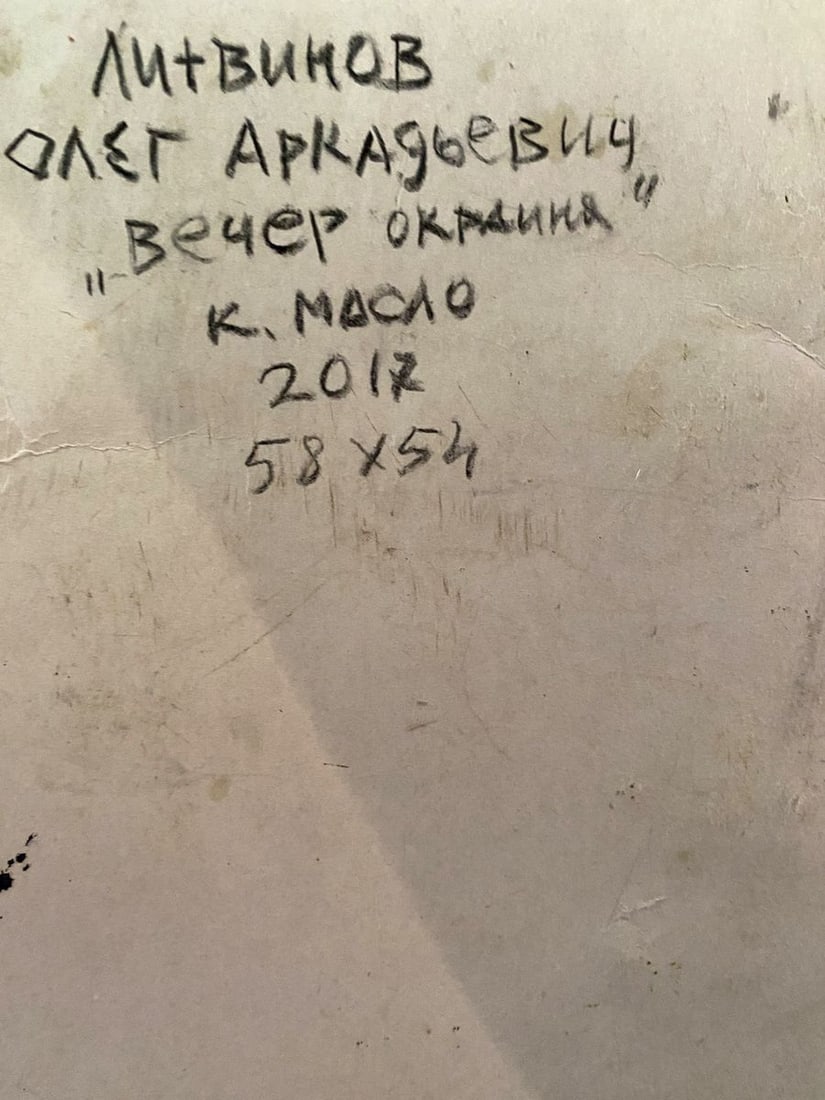 Литвинов
Олег Аркадьевич
„Вечер окраина"
к. масло
2017
58 x 54